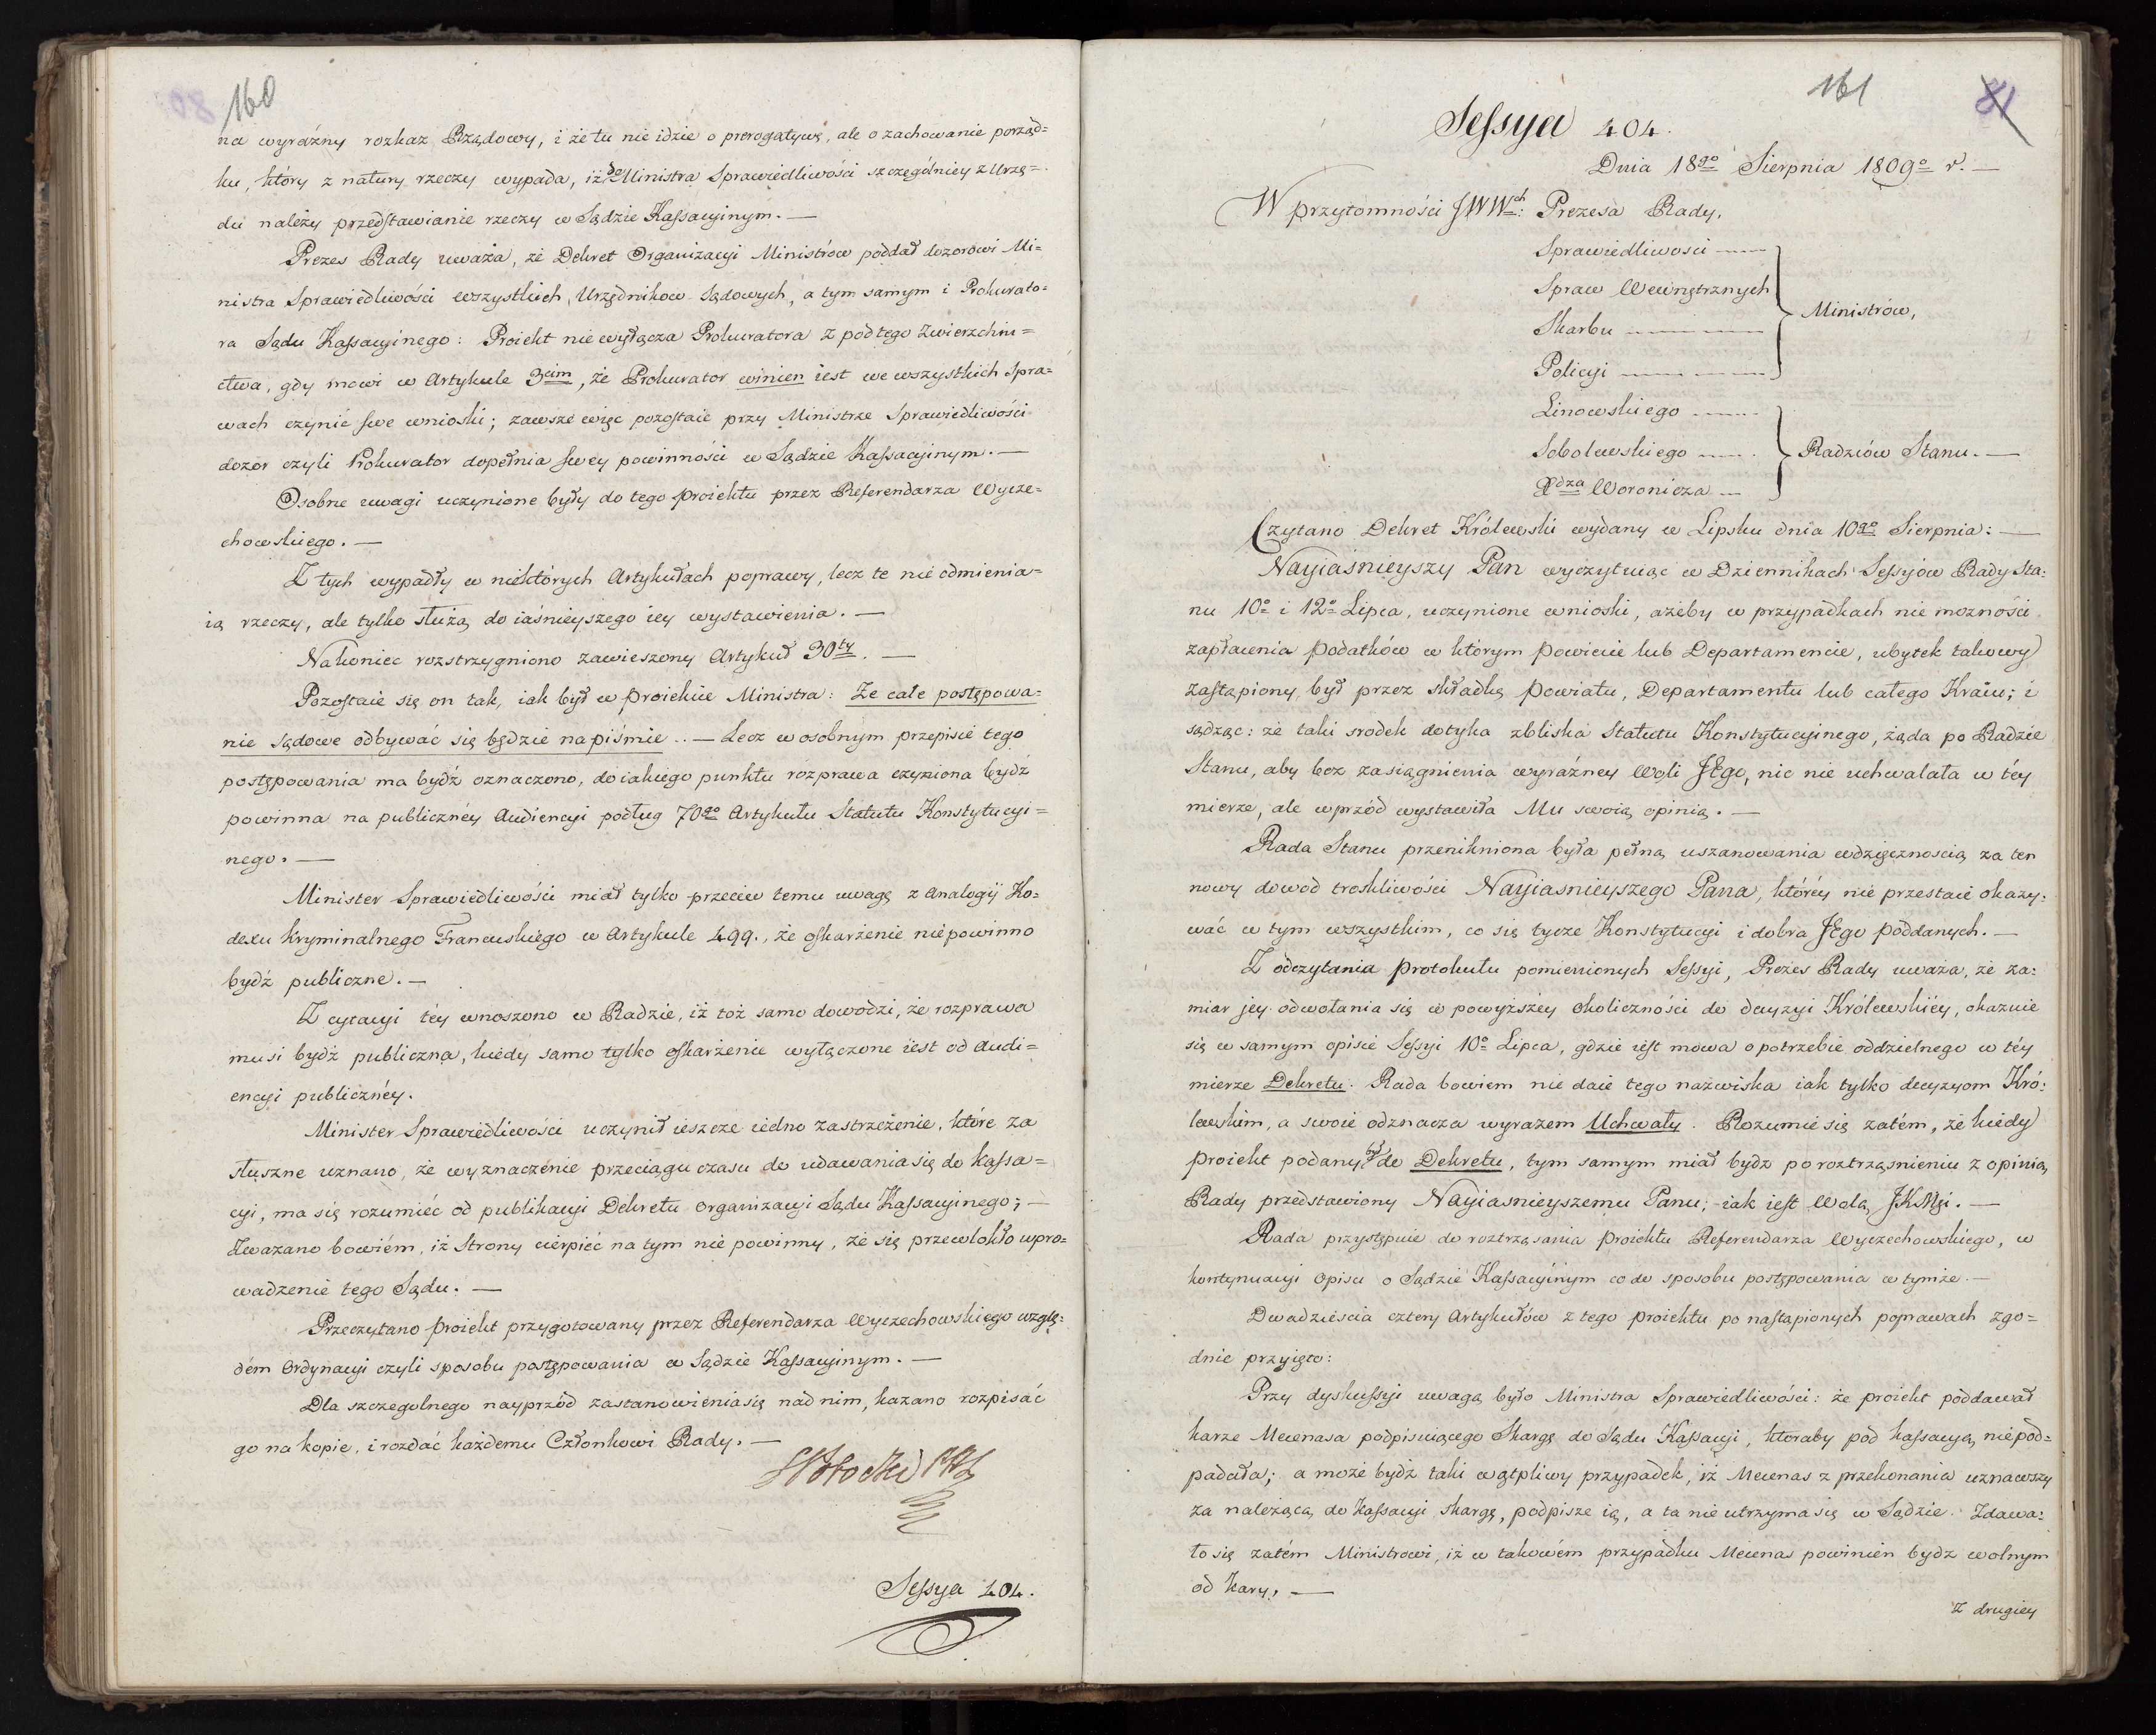 160
na wyraźny rozkaz Rządowy, i że tu nie idzie o prerogatywę, ale o zachowanie porząd=
ku, który z natury rzeczy wypada, iż do Ministra Sprawiedliwości szczególniey z Urzę=
du należy przedstawianie rzeczy w Sądzie Kassacyinym. —
Prezes Rady uważa, że Dekret Organizacyi Ministrów poddał dozorowi Mi=
nistra Sprawiedliwości wszystkich Urzędnikow Sądowych, a tym samym i Prokurato=
ra Sądu Kassacyinego: Proiekt nie wyłącza Prokuratora z pod tego Zwierzchni=
ctwa, gdy mowi w Artykule 3cim, że Prokurator winien iest we wszystkich Spra=
wach czynić swe wnioski; zawsze więc pozostaie przy Ministrze Sprawiedliwości
dozór czyli Prokurator dopełnia swey powinności w Sądzie Kassacyinym. —
Osobne uwagi uczynione były do tego proiektu przez Referendarza Wycze=
chowskiego. —
Z tych wypadły w niektórych Artykułach poprawy, lecz te nie odmienia=
ią rzeczy, ale tylko służą do iaśnieyszego iey wystawienia. —
Nakoniec rozstrzygniono zawieszony Artykuł 30ty. —
Pozostaie się on tak, iak był w proiekcie Ministra: Że całe postępowa=
nie sądowe odbywać się będzie na piśmie.. — Lecz w osobnym przepisie tego
postępowania ma bydź oznaczono, do iakiego punktu rozprawa czyniona bydź
powinna na publicznéy Audiencyi podług 70go Artykułu Statutu Konstytucyi=
nego. —
Minister Sprawiedliwości miał tylko przeciw temu uwagę z Analogij Ko=
dexu Kryminalnego Francuskiego w Artykule 499., że oskarżenie nie powinno
bydź publiczne. —
Z cytacyi téy wnoszono w Radzie, iż toż samo dowodzi, że rozprawa
musi bydź publiczna, kiedy samo tylko oskarżenie wyłączone iest od Audi=
encyi publicznéy.
Minister Sprawiedliwości uczynił ieszcze iedno zastrzeżenie, które za
słuszne uznano, że wyznaczenie przeciągu czasu do udawania się do Kassa=
cyi, ma się rozumiéć od publikacyi Dekretu organizacyi Sądu Kassacyinego; —
Zwazano bowiém, iż Strony cierpiéć na tym nie powinny, że się przewlokło wpro=
wadzenie tego Sądu. —
Przeczytano proiekt przygotowany przez Referendarza Wyczechowskiego wzglę=
dém Ordynacyi czyli sposobu postępowania w Sądzie Kassacyinym. —
Dla szczegolnego nayprzód zastanowienia się nad nim, kazano rozpisać
go na kopie, i rozdać każdemu Członkowi Rady. —
Sessya 404.
161
81
Sessya 404.
Dnia 18go Sierpnia 1809o r. —
W przytomności JWWch: Prezesa Rady,
Sprawiedliwosci —
Spraw Wewnętrznych
Skarbu —
Policyi —
Ministrów,
Linowskiego —
Sobolewskiego —
Xdza Woronicza —
Radziów Stanu. —
Czytano Dekret Królewski wydany w Lipsku dnia 10go Sierpnia: —
Nayiaśnieyszy Pan wyczytuiąc w Dziennikach Sessyjów Rady Sta:
nu 10o i 12o Lipca, uczynione wnioski, ażeby w przypadkach nie możności
zapłacenia podatków w którym powiecie lub Departamencie, ubytek takowy
zastąpiony był przez składkę Powiatu, Departamentu lub całego Kraiu; i
sądząc: że taki srodek dotyka zbliska Statutu Konstytucyinego, żąda po Radzie
Stanu, aby bez zasiągnienia wyraźney Woli JEgo, nic nie uchwalała w téy
mierze, ale wprzód wystawiła Mu swoią opinią. —
Rada Stanu przenikniona była pełną uszanowania wdzięcznoscią za ten
nowy dowod troskliwości Nayiasnieyszego Pana, któréy nie przestaie okazy:
wać w tym wszystkim, co się tycze Konstytucyi i dobra JEgo poddanych. —
Z odczytania Protokułu pomienionych Sessyi, Prezes Rady uważa, że za:
miar jey odwołania się w powyższéy okoliczności do decyzyi Królewskiéy, okazuie
się w samym opisie Sessyi 10o Lipca, gdzie iest mowa o potrzebie oddzielnego w téy
mierze Dekretu. Rada bowiem nie daie tego nazwiska iak tylko decyzyom Kró:
lewskim, a swoie odznacza wyrazem Uchwały. Rozumie się zatém, że kiedy
proiekt podany był do Dekretu, tym samym miał bydz po roztrząsnieniu z opinią
Rady przedstawiony Nayiasnieyszemu Panu; iak iest Wola JKMci. —
Rada przystępuie do roztrząsania proiektu Referendarza Wyczechowskiego, w
kontynuacyi Opisu o Sądzie Kassacyinym co do sposobu postępowania w tymże. —
Dwadzieścia cztery Artykułów z tego proiektu po nastąpionych poprawach zgo=
dnie przyięto:
Przy dyskussyi uwagą było Ministra Sprawiedliwości: że proiekt poddawał
karze Mecenasa podpisuiącego Skargę do Sądu Kassacyi, któraby pod kassacyą niepod=
padała; a może bydź taki wątpliwy przypadek, iż Mecenas z przekonania uznawszy
za należącą do Kassacyi skargę, podpisze ią, a ta nie utrzyma się w Sądzie. Zdawa:
ło się zatém Ministrowi, iż w takowém przypadku Mecenas powinien bydz wolnym
od Kary. —
Z drugiey